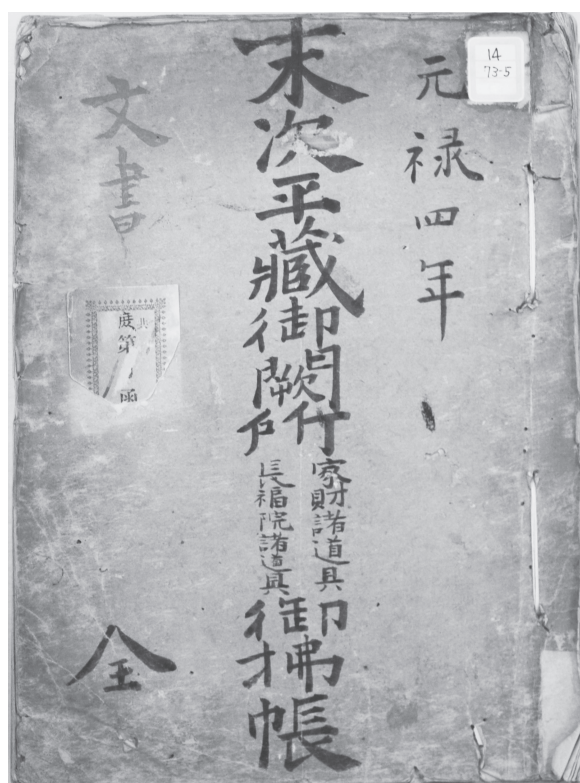 14
73-5
元禄四年
末次平藏御闕所
家財諸道具
長福院諸道具
御拂帳
文書
全
第